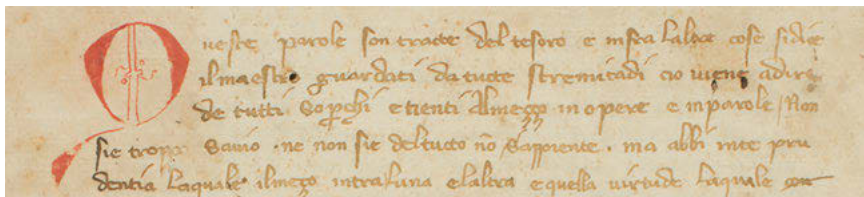 Queste parole son tracte del tesoro e infra laltre cose si dice
il maestro guardati da tucte stremitadi cio viene a dire
de tutti soperchi e tienti Almeço in opere e in parole / Non
sie troppo savio . ne non sie del tucto nō sappiente . ma abbi inte pru
dentia laquale il meço intra luna e laltra e quella virtude laquale